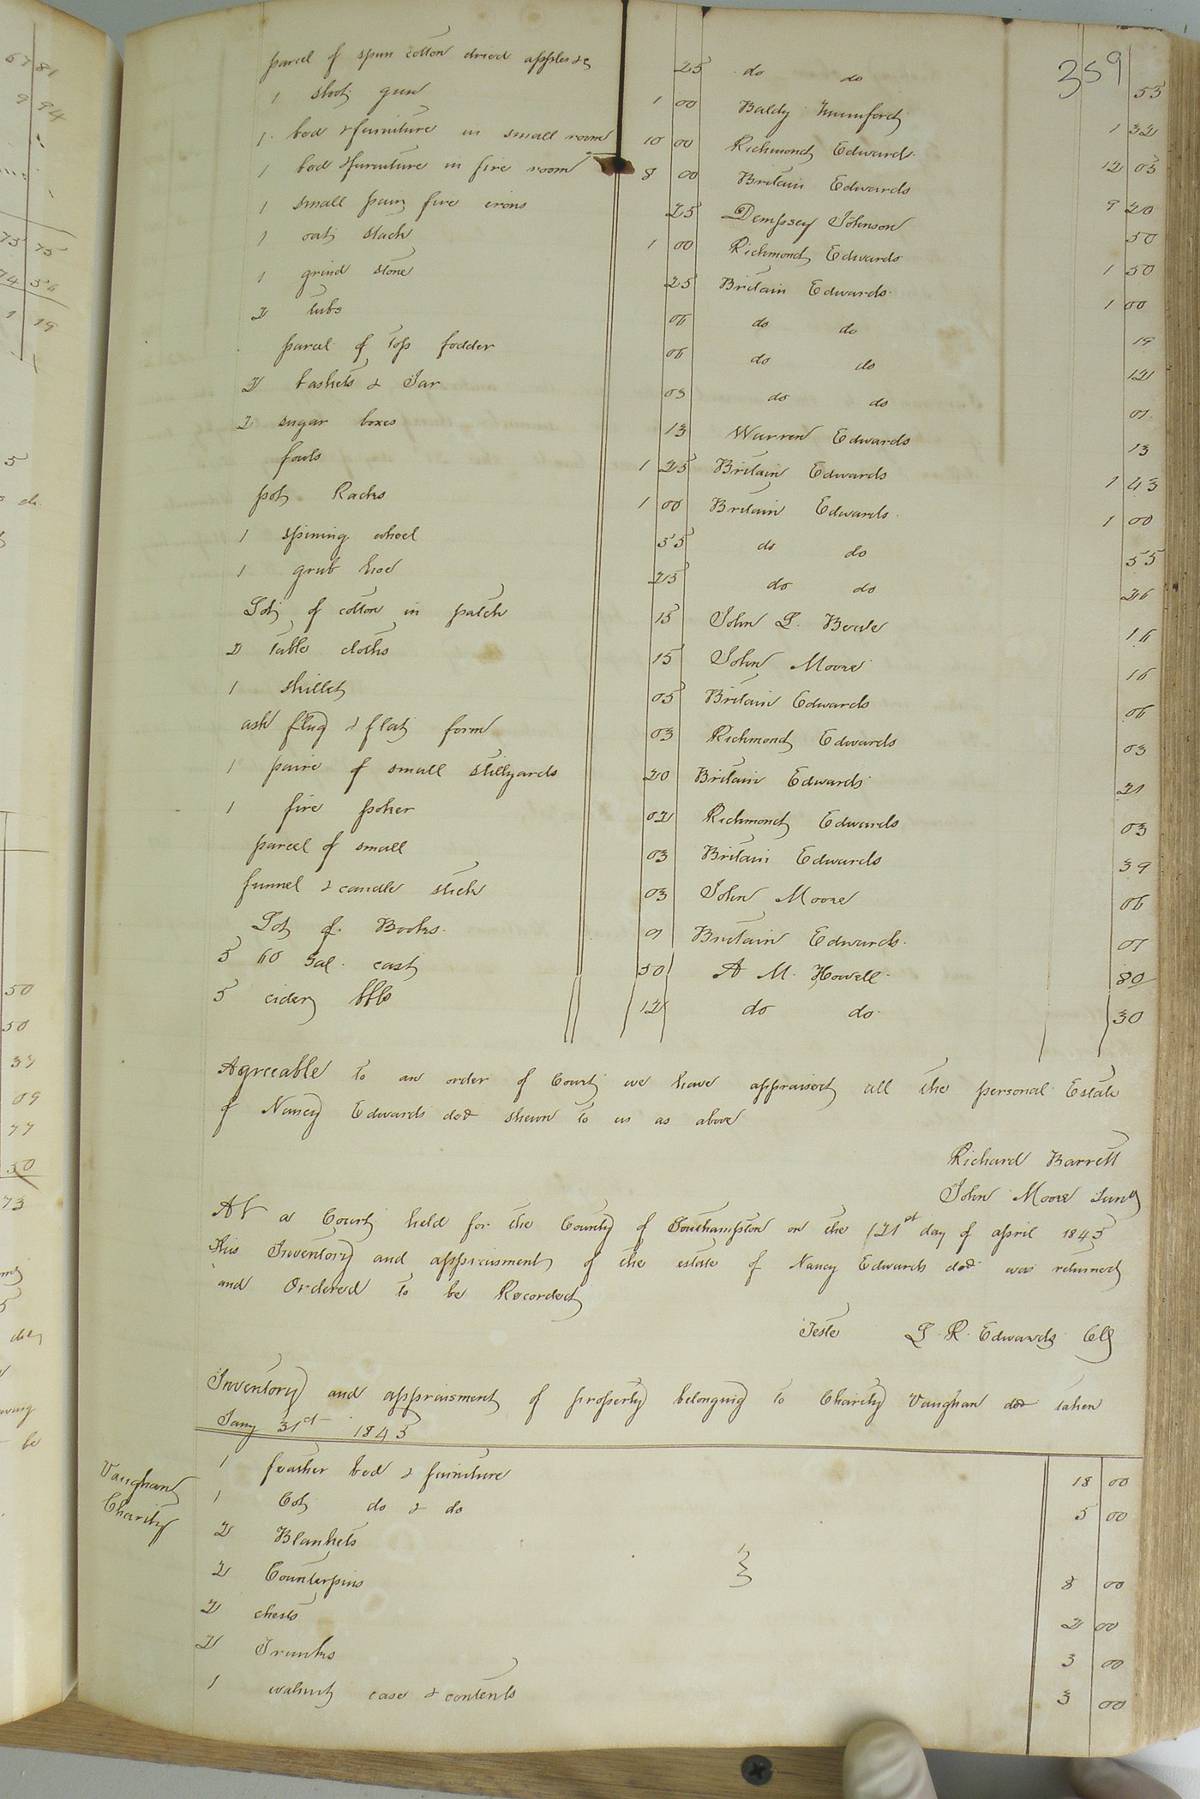 359
parcel of spun cotton dried apples &c 25 do do 53
1 shot gun 1 00 Baldy Mumford 1 32
1 bed & furniture in small room 10 00 Richmond Edward 12 05
1 bed & furniture in fire room 8 00 Britain Edwards 9 20
1 small pair fire irons 25 Dempsey Johnson 50
1 oat stack 1 00 Richmond Edwards 1 50
1 grind stone 25 Britain Edwards 1 00
2 tubs 06 do do 19
parcel of Top fodder 06 do do 12
2 baskets & Jar 05 do do 07
2 sugar boxes 13 Warren Edwards 13
fouls 1 25 Britain Edwards 1 43
pot Racks 1 00 Britain Edwards 1 00
1 spining wheel 55 do do 55
1 grub hoe 25 do do 26
Lot of cotton in patch 15 John L. 16
2 table cloths 15 John Moore 16
1 skillet 05 Britain Edwards 06
ash & flat form 03 Richmond Edwards 03
1 paire of small stillyards 20 Britain Edwards 21
1 fire poker 02 Richmond Edwards 03
parcel of small 03 Britain Edwards 39
funnel & candle stick 03 John Moore 06
Lot of Books 01 Britain Edwards 07
5 60 Gal. cask 50 A M. Howell 80
5 cider bbls 12 do do 30
Agreeable to an order of Court we have appraised all the personal Estate
of Nancy Edwards decd shewn to us as above
Richard Barrett
John Moore Junr
At a Court held for the County of Southampton on the 21st day of april 1845
This Inventory and appraisment of the estate of Nancy Edwards decd was returned
and Ordered to be Recorded
Teste L. R. Edwards Clk
Inventory and appraisment of property belonging to Charity Vaughan decd taken
Jany 31st 1845
Vaughan
Charity
1 feather bed & furniture 18 00
1 Cot do & do 5 00
2 Blankets
2 Counterpins 8 00
2 chests 2 00
2 Trunks 3 00
1 walnut case & contents 3 00